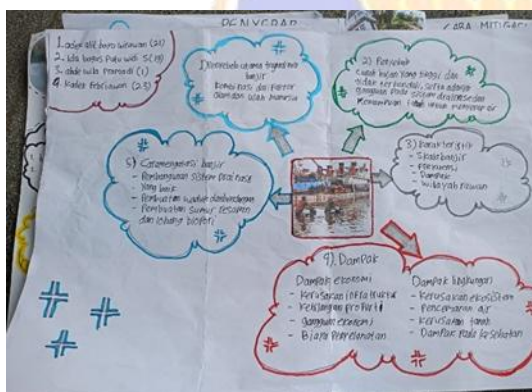 PENYEBAB
CARA MITIGASI
1.
2. Ida bagus Putu widi S(19)
3. Permadi (1)
4. Kadek Febriawan (23)
1) Penyebab utama terjadinya
banjir
Kombinasi dari Faktor
alam dan ulah manusia
2) Penyebab
curah hujan yang tinggi dan
tidak terkendali, serta adanya
gangguan pada sistem drainase dan
kemampuan tanah untuk menyerap air
3) Karakteristik
- Skala banjir
- Frekuensi
- Dampak
- Wilayah rawan
5) Cara mengatasi banjir
- Pembangunan sistem Drainase
yang baik
- Pembuatan waduk dan bendungan
- Pembuatan sumur resapan
dan lubang biopori
4). Dampak
Dampak ekonomi
- Kerusakan infrastruktur
- Kehilangan properti
- gangguan ekonomi
- Biaya penyelamatan
Dampak lingkungan
- Kerusakan ekosistem
- Pencemaran air
- Kerusakan tanah
- Dampak pada kesehatan